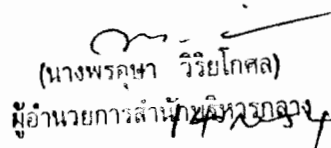 (นางพรอุษา วิริยโกศล)
ผู้อำนวยการสำนักบริหารกลาง